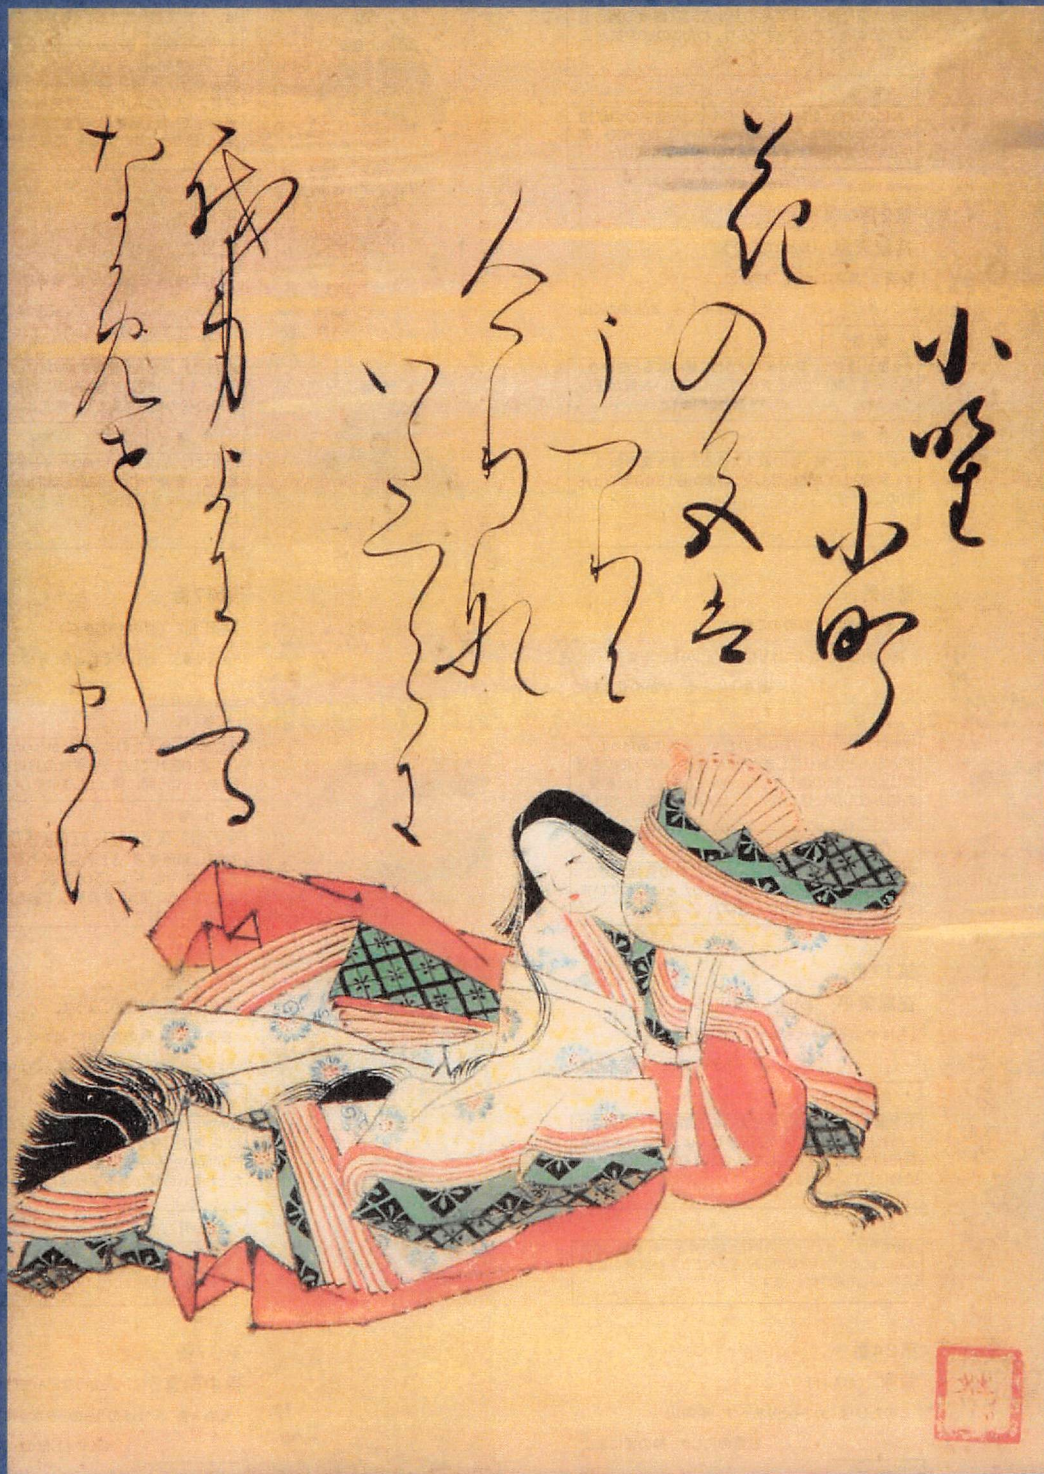 小野
小町
花の色は
うつりに
けりな
いたつらに
我身よにふる
なかめせし
まに